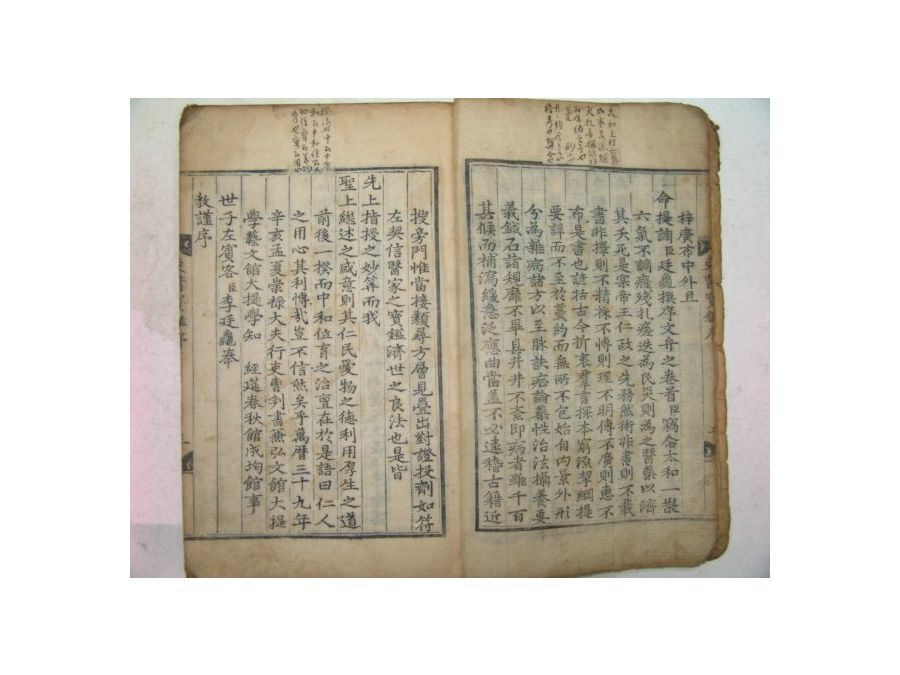 梓廣布中外且
命提調臣廷龜撰序文弁之卷首臣竊念太和一散
六氣不調癃殘扎瘥迭為民災則為之醫藥以濟
其夭死是寔帝王仁政之先務然術非書則不載
書非擇則不精採不愽則理不明傳不廣則惠不
布是書也該括古今折衷群言探本窮源挈綱提
要詳而不至於蔓約而無所不包始自內景外形
分為雜病諸方以至脉訣症論藥性治法攝養要
義鍼石諸規靡不畢具井井不紊即病者雖千百
其候而補瀉緩急泛應曲當盖不必遠稽古籍近
搜旁門惟當按類尋方層見疊出對證投劑如符
左契信醫家之寶鑑濟世之良法也是皆
先上指授之妙筭而我
聖上繼述之盛意則其仁民愛物之德利用厚生之道
前後一揆而中和位育之治亶在於是語曰仁人
之用心其利愽哉豈不信然矣乎萬曆三十九年
辛亥孟夏崇祿大夫行吏曹判書兼弘文館大提
學藝文館大提學知 經筵春秋館成均館事
世子左賓客臣李廷龜奉
敎謹序